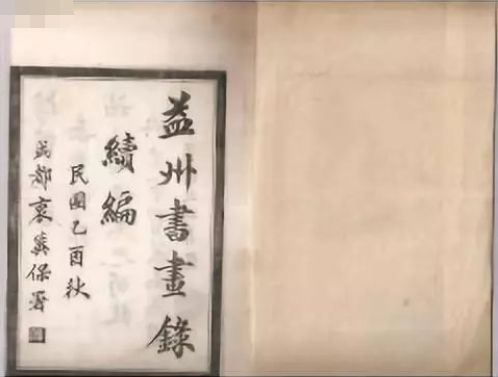 益州書畫錄
續編
民國乙酉秋
成都衷冀保署